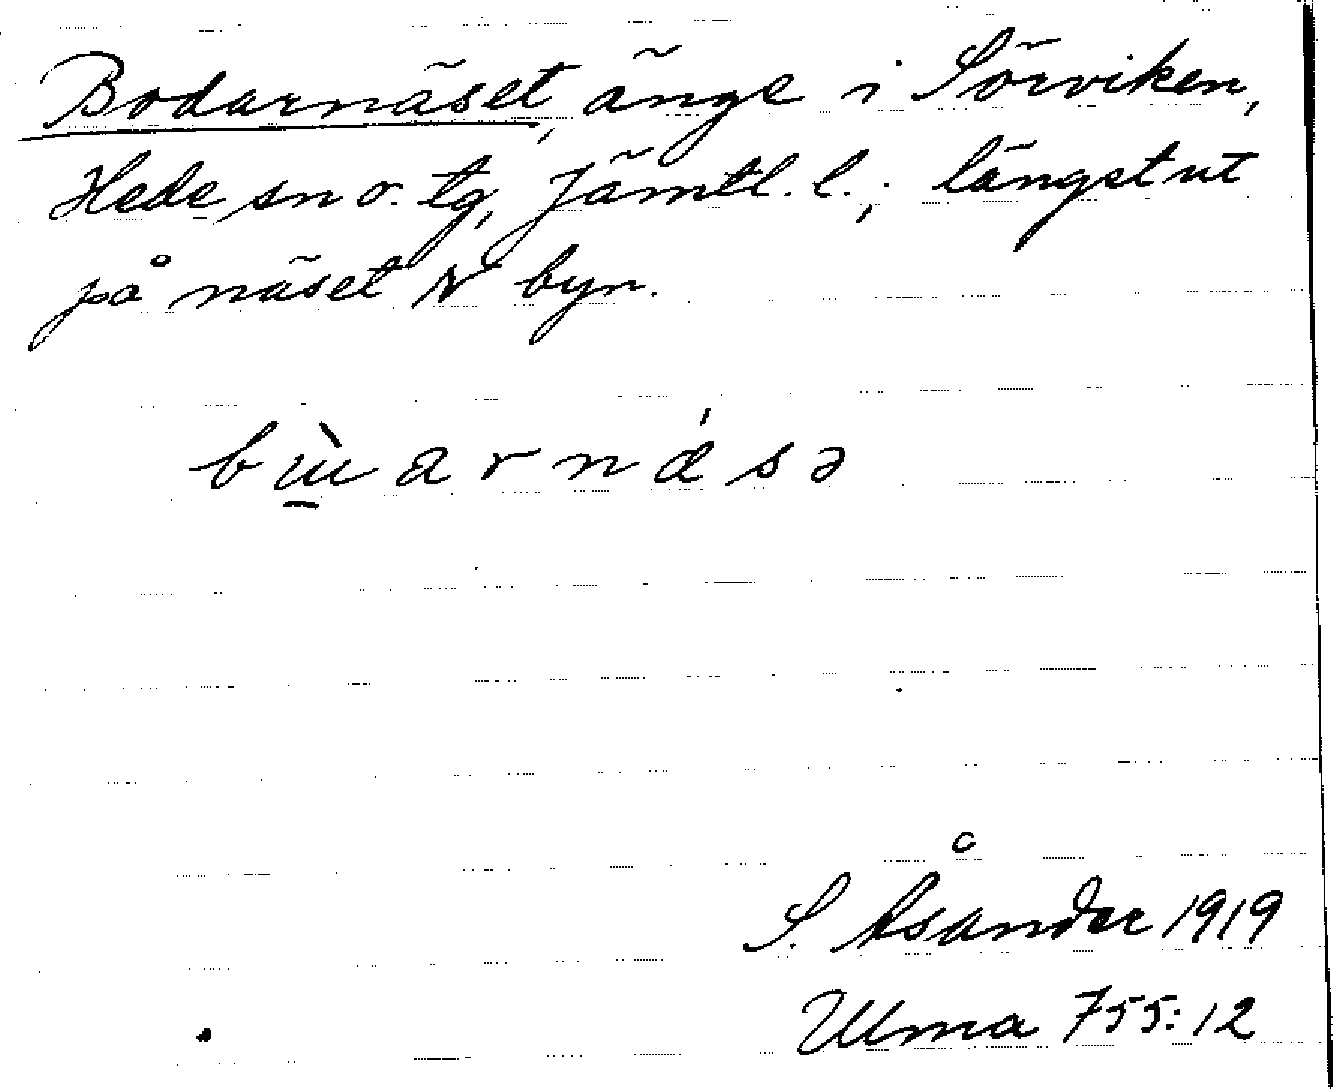 Bodarnäset, änge i Sörviken,
Hede sn o. tg, Jämtl. l.; längst ut
på näset N byn.
bɯ̱̀arnǽsə
S. Åsander 1919
Ulma 755:12